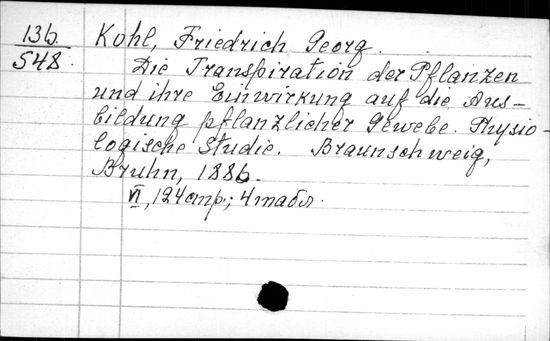 13б.
548.
Kohl, Friedrich Georg.
Die Transpiration der Pflanzen
und ihre Einwirkung auf die Aus-
bildung pflanzlicher Gewebe. Physio-
logische Studie. Braunschweig,
Bruhn, 1886.
VI, 124 стр.; 4 табл.